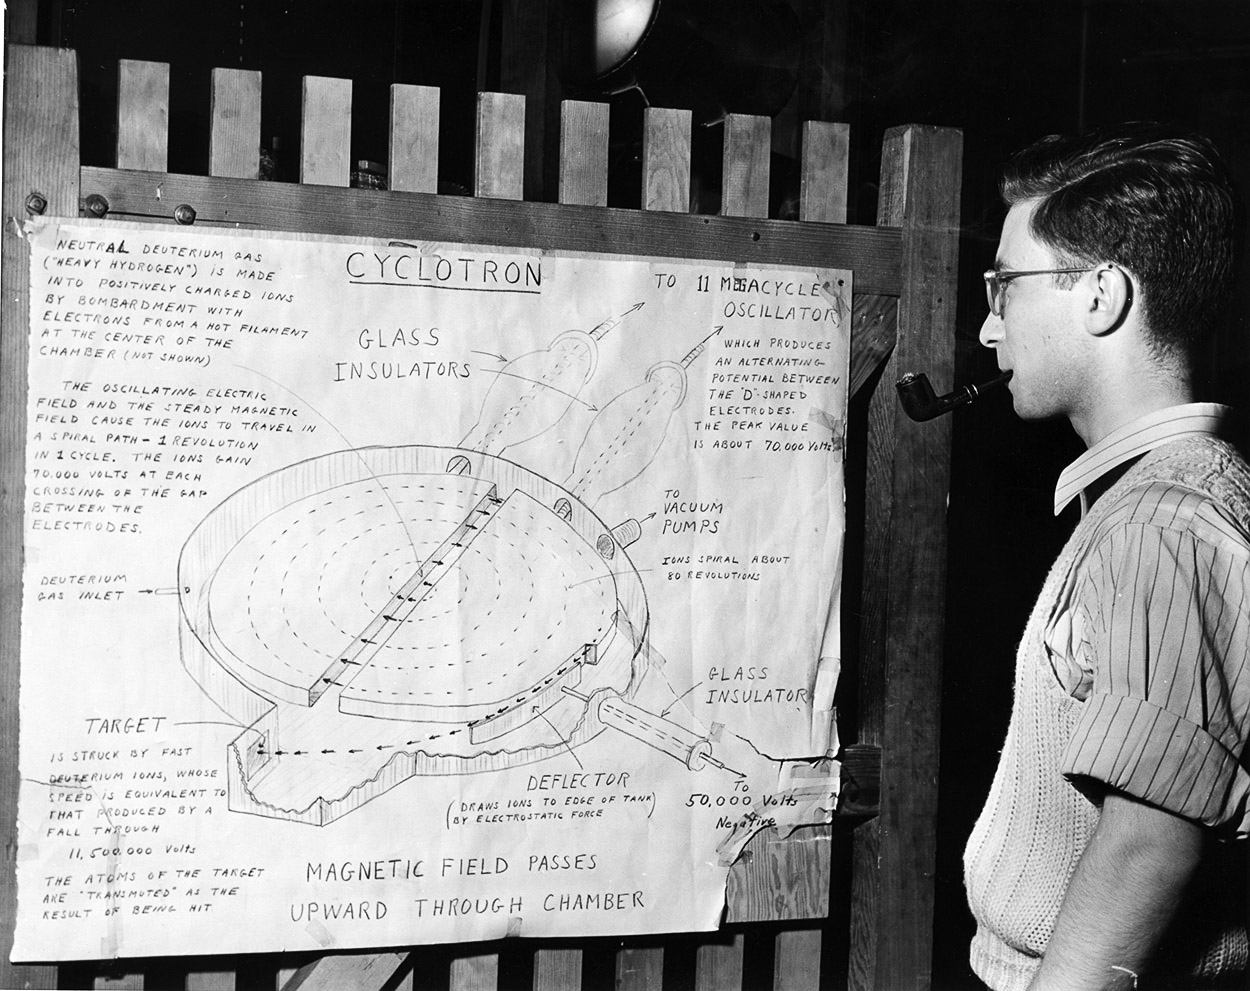 CYCLOTRON
NEUTRAL DEUTERIUM GAS
("HEAVY HYDROGEN") IS MADE
INTO POSITIVELY CHARGED IONS
BY BOMBARDMENT WITH
ELECTRONS FROM A HOT FILAMENT
AT THE CENTER OF THE
CHAMBER (NOT SHOWN)
THE OSCILLATING ELECTRIC
FIELD AND THE STEADY MAGNETIC
FIELD CAUSE THE IONS TO TRAVEL IN
A SPIRAL PATH - 1 REVOLUTION
IN 1 CYCLE. THE IONS GAIN
70,000 VOLTS AT EACH
CROSSING OF THE GAP
BETWEEN THE
ELECTRODES.
DEUTERIUM
GAS INLET
GLASS
INSULATORS
TO 11 MEGACYCLE
OSCILLATOR
WHICH PRODUCES
AN ALTERNATING
POTENTIAL BETWEEN
THE "D"-SHAPED
ELECTRODES.
THE PEAK VALUE
IS ABOUT 70,000 VOLTS
TO
VACUUM
PUMPS
IONS SPIRAL ABOUT
80 REVOLUTIONS
GLASS
INSULATOR
TARGET
IS STRUCK BY FAST
DEUTERIUM IONS, WHOSE
SPEED IS EQUIVALENT TO
THAT PRODUCED BY A
FALL THROUGH
11,500,000 Volts
THE ATOMS OF THE TARGET
ARE "TRANSMUTED" AS THE
RESULT OF BEING HIT
DEFLECTOR
(DRAWS IONS TO EDGE OF TANK)
BY ELECTROSTATIC FORCE
To
50,000 Volts
Negative
MAGNETIC FIELD PASSES
UPWARD THROUGH CHAMBER